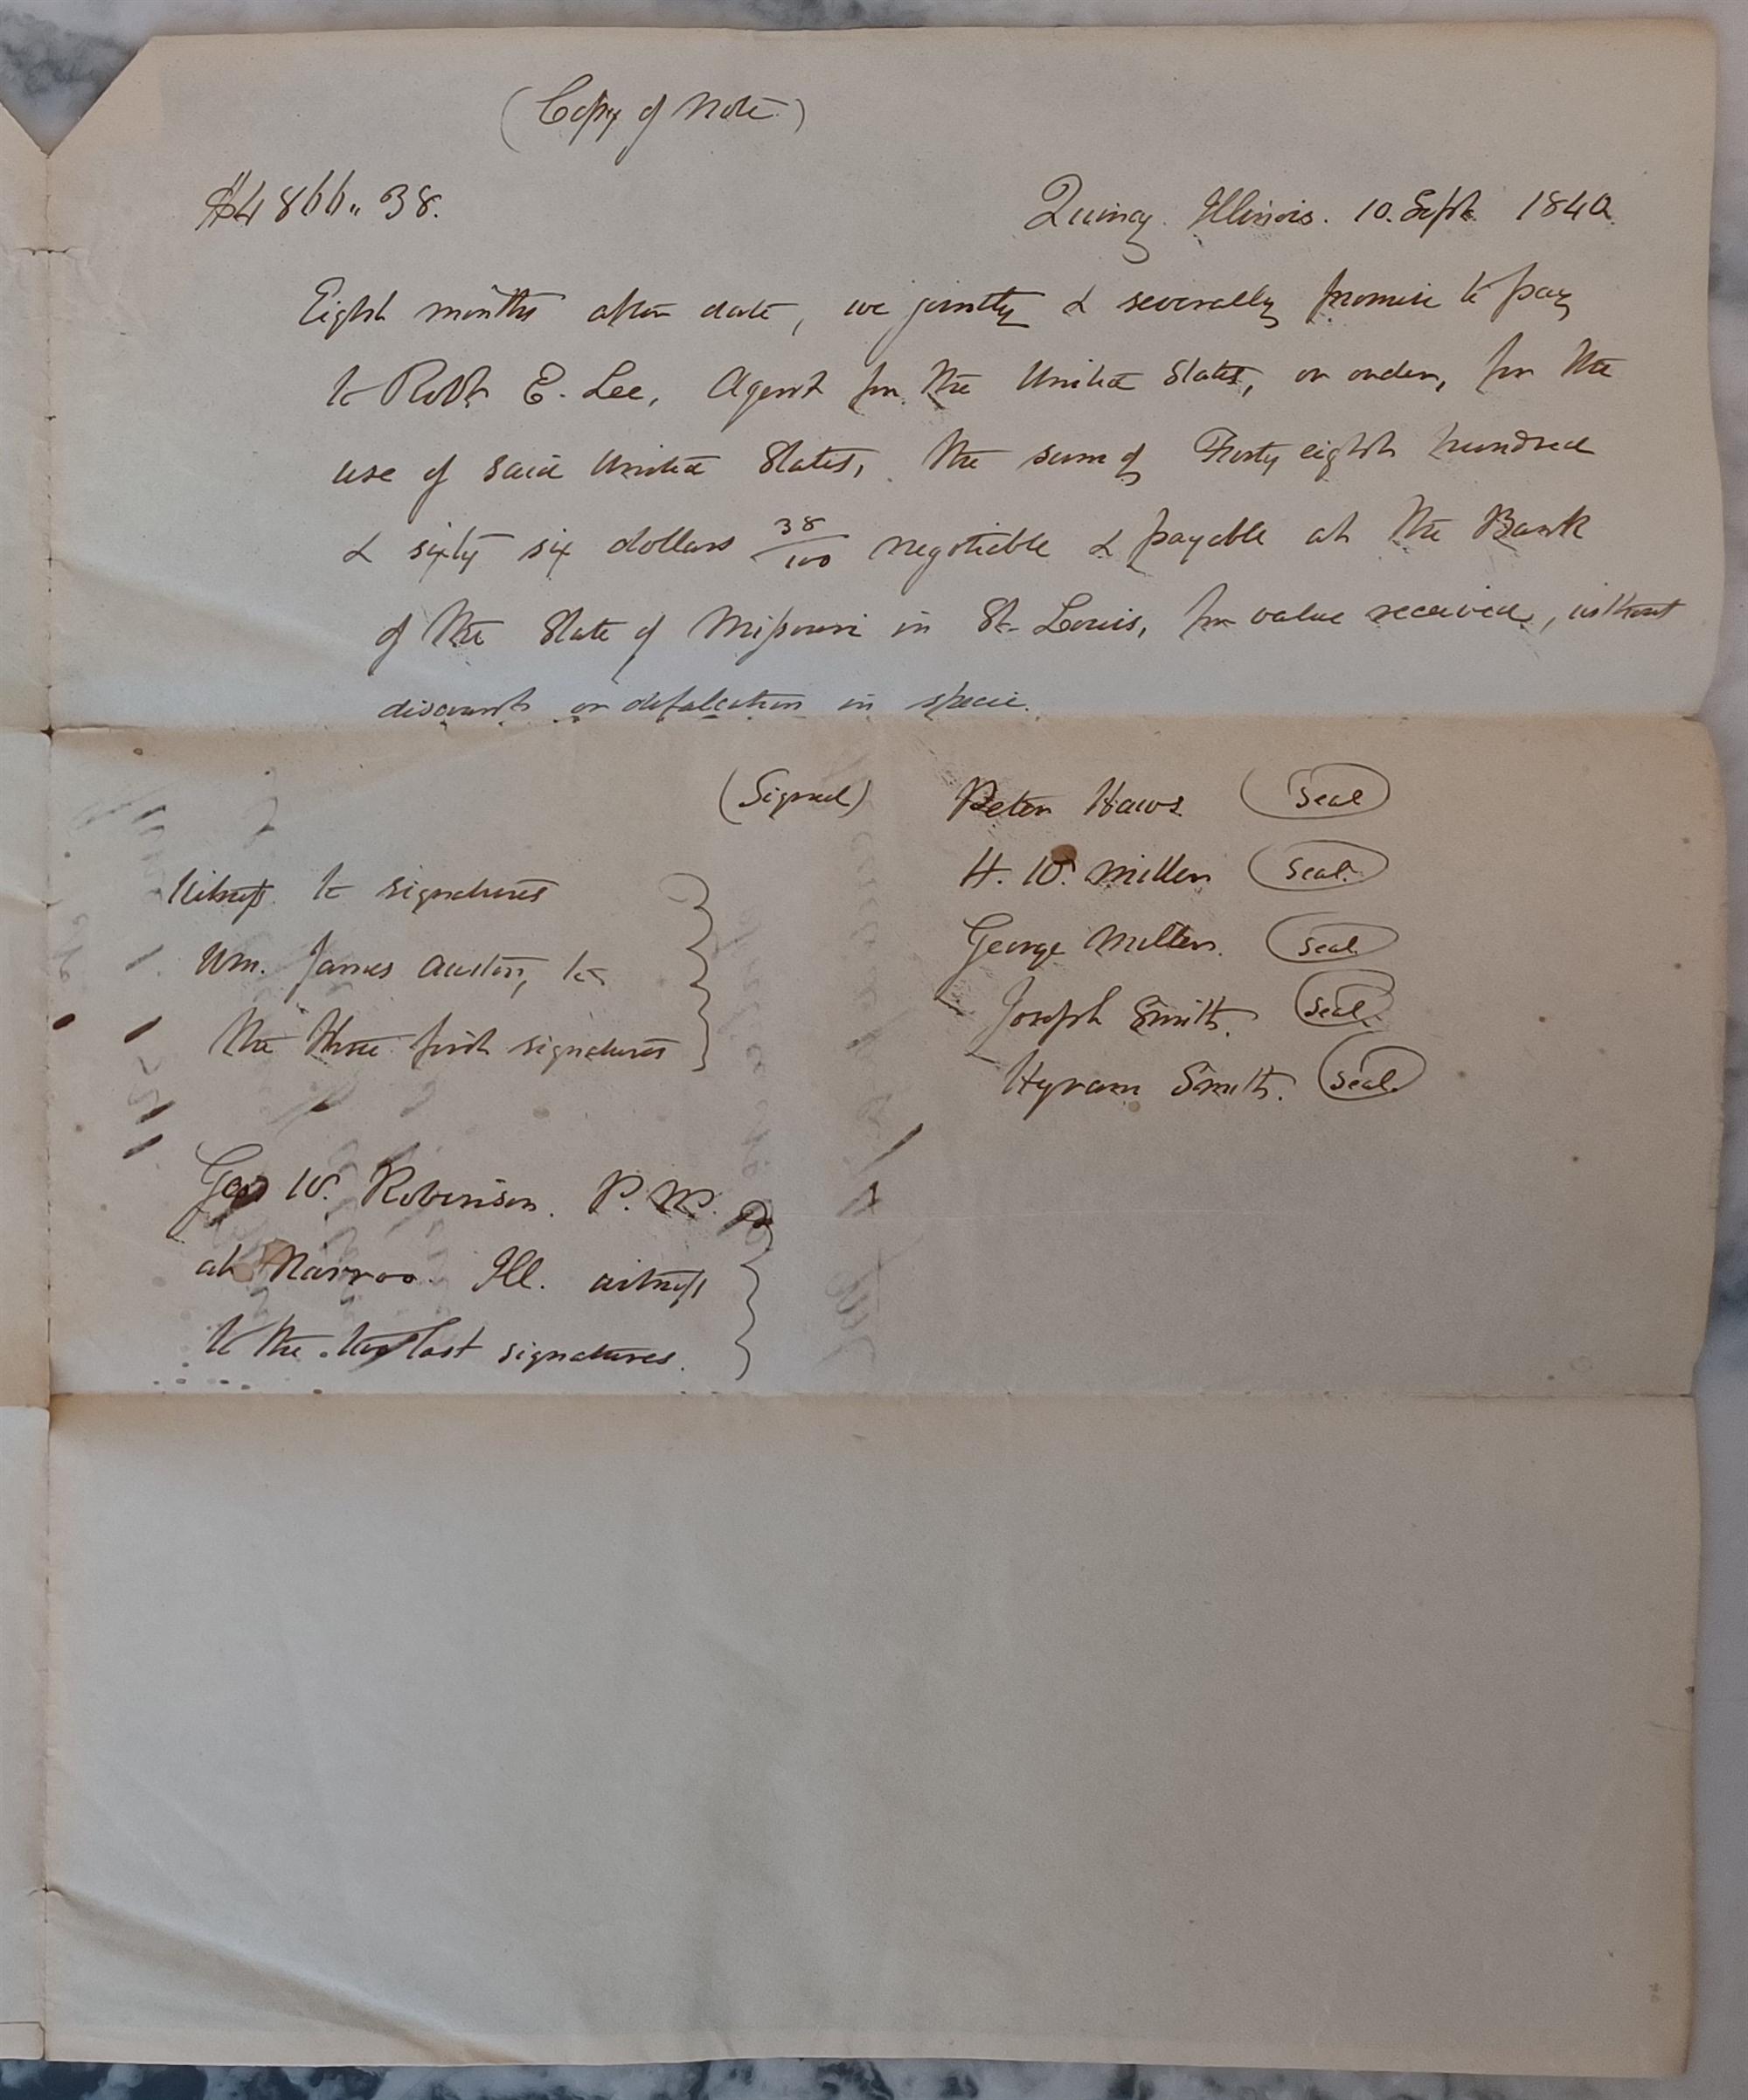 (Copy of Note)
$4866.. 38.
Quincy. Illinois. 10. Sept. 1840
Eight months after date, we jointly & severally promise to pay
to Robt E. Lee, Agent for the United States, or order, for the
use of said United States, the sum of Forty eight hundred
& sixty six dollars 38/100 negotiable & payable at the Bank
of the State of Missouri in St. Louis, for value received, without
discount or defalcation in specie.
(Signed) Peter Haws Seal
H. W. Miller Seal.
George Miller. Seal
Joseph Smith. Seal.
Hyram Smith. Seal.
Witness to signatures
Wm. James Austin, to
the three first signatures
Geo W. Robinson. P. M.
at Nauvoo. Ill. witness
to the two last signatures.